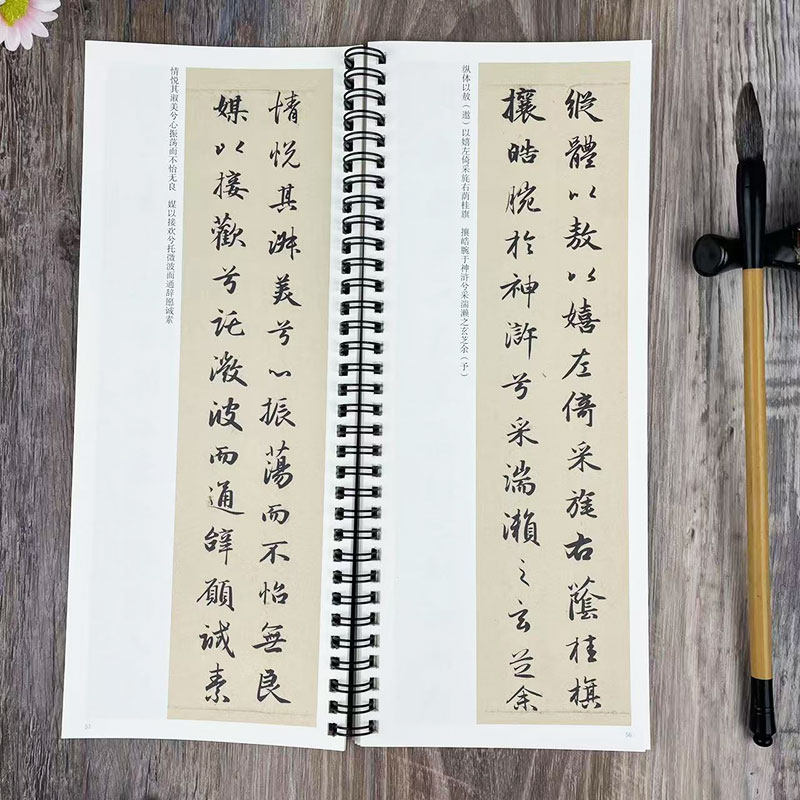 縱體以敖以嬉左倚采旄右蔭桂旗
攘皓腕於神滸兮采湍瀨之玄芝余
纵体以敖（遨）以嬉左倚采旄右荫桂旗 攘皓腕于神浒兮采湍濑之玄芝余（予）
56
情悅其淑美兮心振蕩而不怡無良
媒以接歡兮託微波而通辭願誠素
情悦其淑美兮心振荡而不怡无良 媒以接欢兮托微波而通辞愿诚素
57